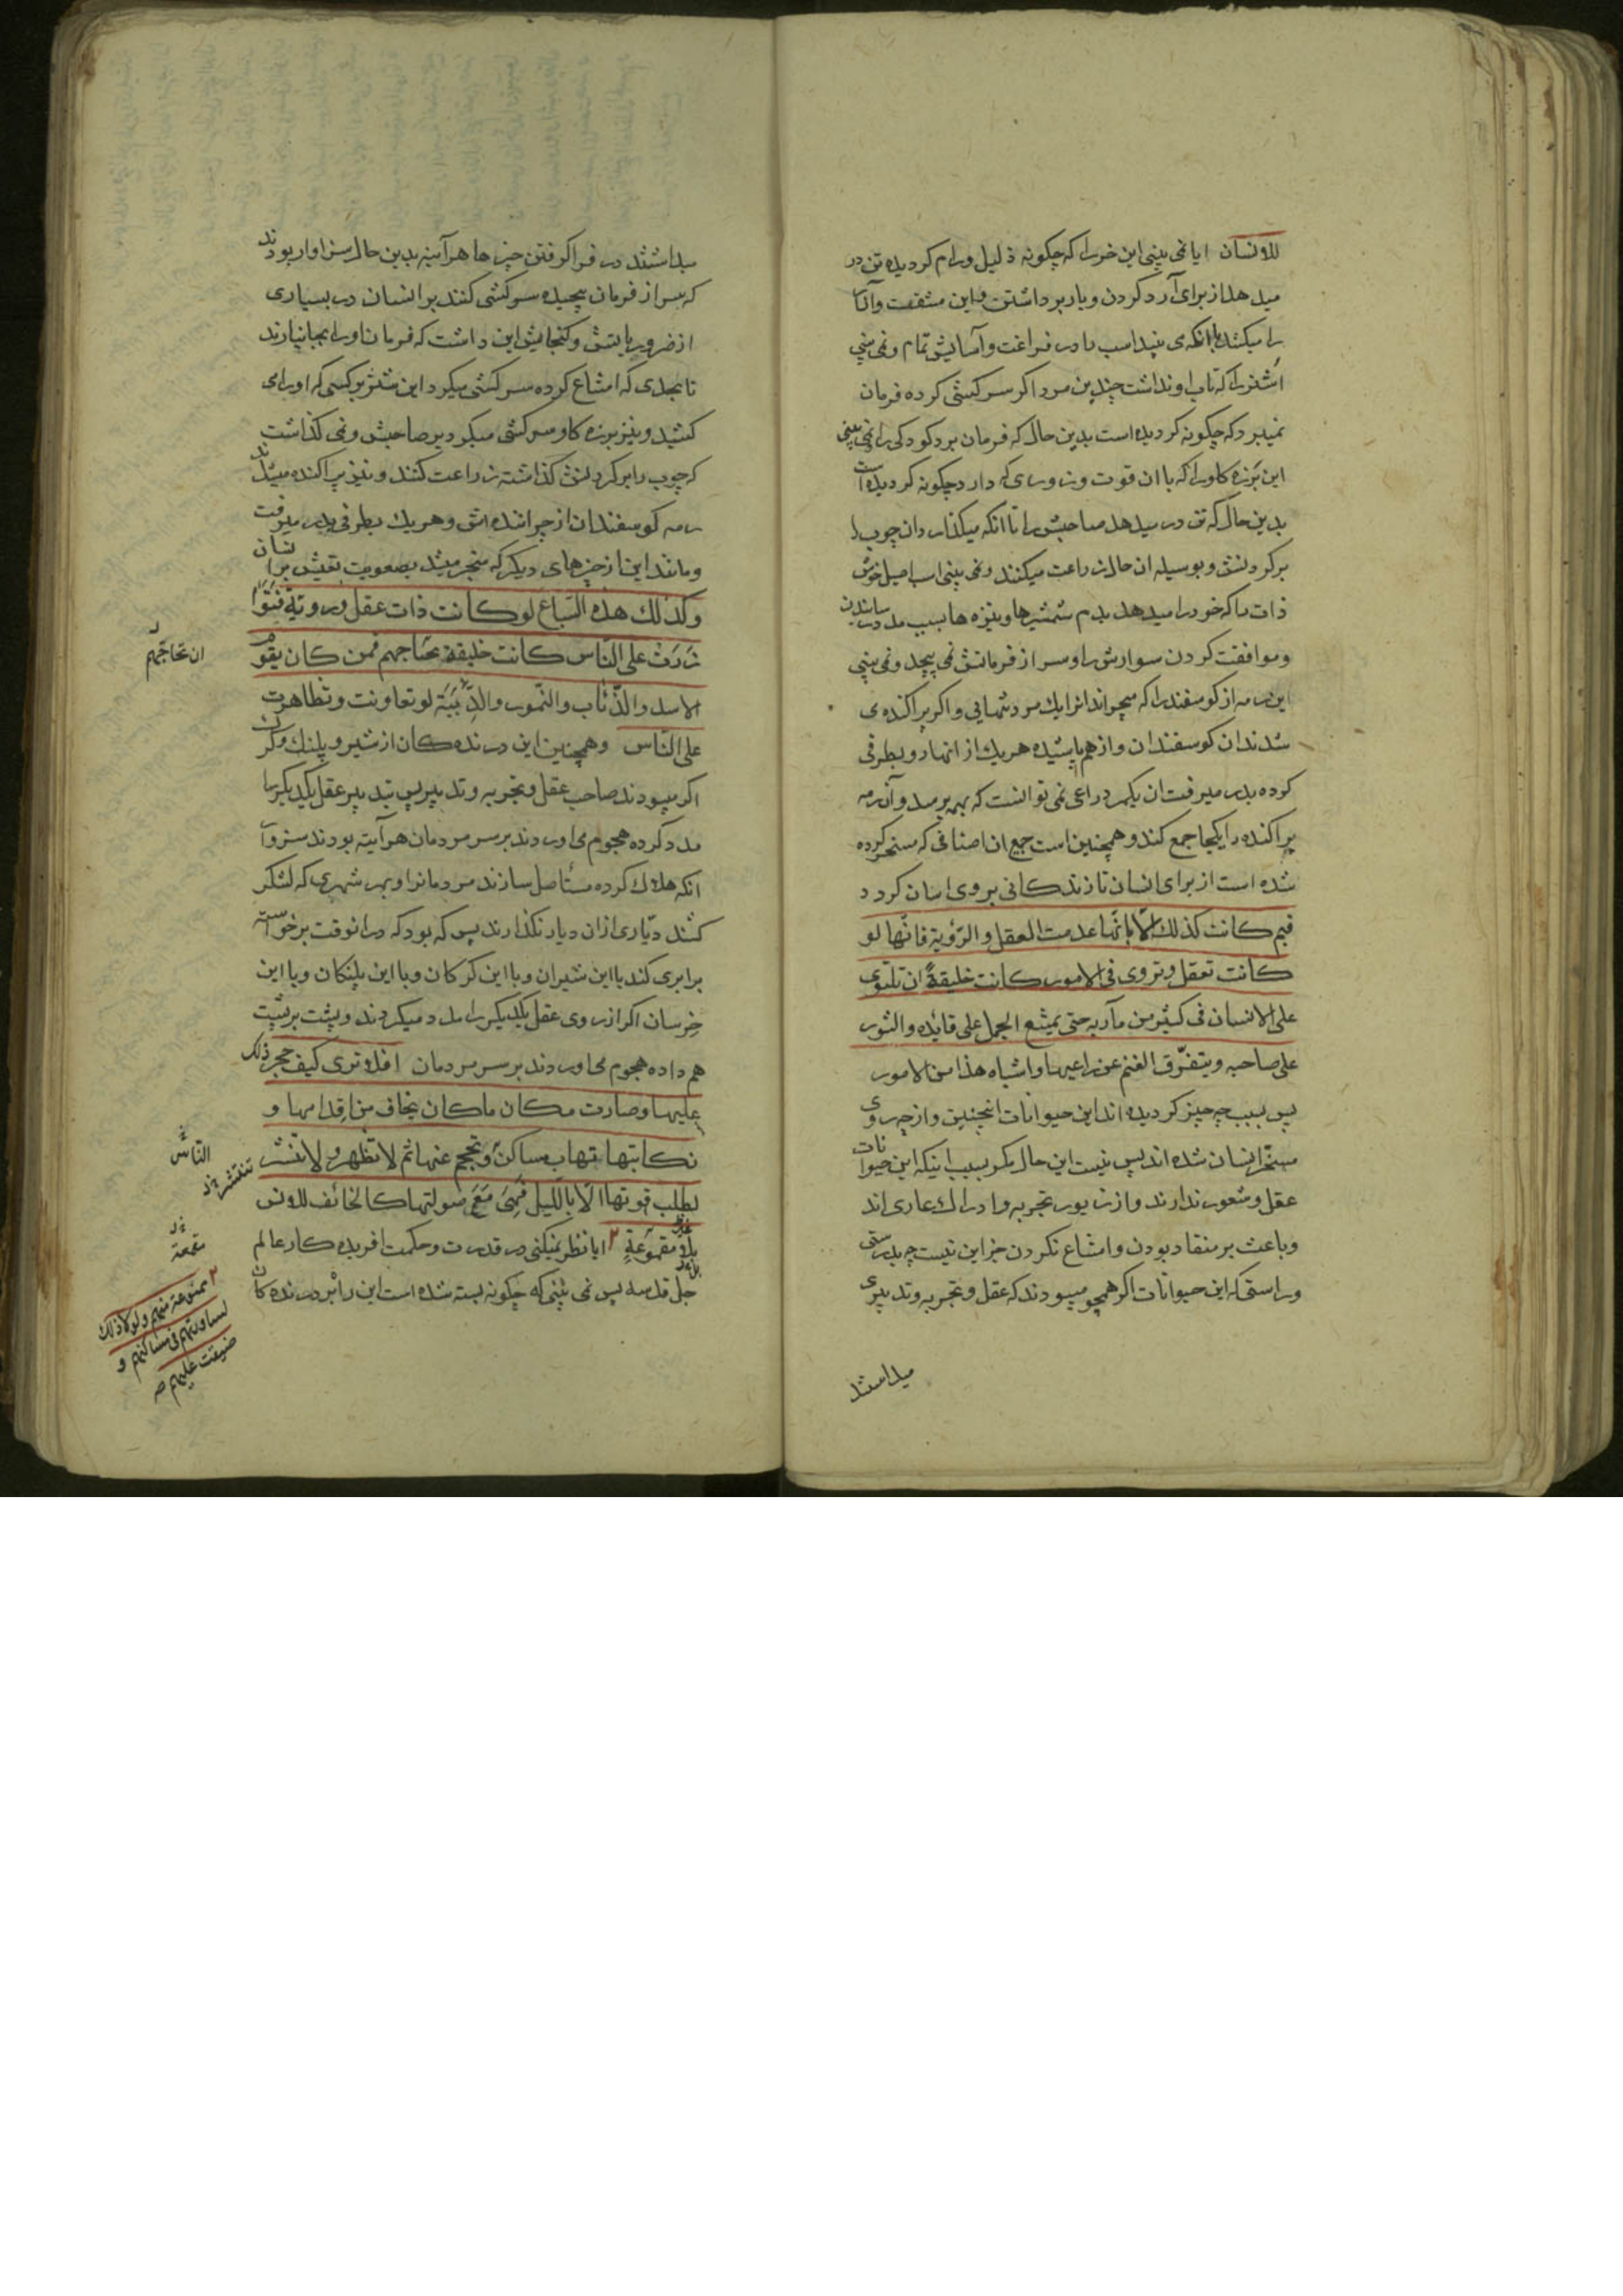 للانسان ایا نمی بینی این خر را که چکونه ذلیل و رام کردیده تن در
میدهد از برای آرد کردن و بار برداشتن و این مشقت و آزار
را میکشد با انکه می بیند اسب را در فراغت و آسایش تمام و نمی بینی
اشتر را که تاب او نداشت چندین مرد اکر سرکشی کرده فرمان
نمیبرد که چکونه کردیده است بدین حال که فرمان برد کودکی را و نمی بینی
این برزه کاو را که با ان قوت و زوری که دارد چکونه کردیده است
بدین حال که تن در میدهد صاحبش را تا انکه میکذارد ان چوب را
بر کردنش و بوسیله ان حال زراعت میکنند و نمی بینی اسب اصیل خوش
ذات را که خود را میدهد بدم شمشیرها و نیزه ها بسبب مدد رسانیدن
و موافقت کردن سوارش را و سر از فرمانش نمی پیچد و نمی بینی
این رمه از کوسفند را که میچراند انرا یک مرد تنهایی و اکر پراکنده می
شدند ان کوسفندان و از هم پاشیده هر یک از انها رو بطرفی
کرده بدر میرفت ان یکمرد راعی نمی توانست که بهمه برسد و آن رمه
پراکنده را یکجا جمع کند و همچنین است جمیع ان اصنافی که مسخر کرده
شده است از برای انسان تا زندکانی بر وی اسان کردد
فبم کانت کذلک الا بانها عدمت العقل و الرؤیة فانها لو
کانت تعقل و تروی فی الامور کانت خلیقة ان تلتوی
علی الانسان فی کثیر من مآربه حتی یمتنع الجمل علی قایده و الثور
علی صاحبه و یتفرق الغنم عن راعیها و اشباه هذا من الامور
پس بسبب چه چیز کردیده اند این حیوانات اینچنین و از چه روی
مسخر انسان شده اند پس نیست این حال مکر بسبب اینکه این حیوانات
عقل و شعور ندارند و از زیور تجربه و ادراک عاری اند
و باعث بر منقاد بودن و امتناع نکردن جز این نیست چه بدرستی
و راستی که این حیوانات اکر همچو میبودند که عقل و تجربه و تدبیری
میداشتند
میداشتند در فرا کرفتن چیزها هر آینه بدین حال سزاوار بودند
که سر از فرمان پیچیده سرکشی کنند بر انسان در بسیاری
از ضروریاتش و کنجایش این داشت که فرمان او را بجا نیارند
تا بحدی که امتناع کرده سرکشی میکرد این شتر بر کسی که او را می
کشید و نیز برزه کاو سرکشی میکرد بر صاحبش و نمی کذاشت
که چوب را بر کردنش کذاشته زراعت کنند و نیز پراکنده میشد
رمه کوسفندان از چراننده اش و هر یک بطرفی بدر میرفت
و مانند این از چیزهای دیکر که منجر میشد بصعوبت تعیش بر انسان
و کذلک هذه السباع لو کانت ذات عقل و رویة فتوا
زرت علی الناس کانت خلیقة تجتاجهم فمن کان یقوم
الاسد و الذئاب و النمور و الدببة لو تعاونت و تظاهرت
علی الناس و همچنین این درنده کان از شیر و پلنک و کرک
اکر میبودند صاحب عقل و تجربه و تدبیر پس بتدبیر عقل یکدیکر را
مدد کرده هجوم می اوردند بر سر مردمان هر آینه بودند سزوار
انکه هلاک کرده مستأصل سازند مردمانرا و بهر شهری که لشکر
کشند دیاری ازان دیار نکذارند پس که بود که در انوقت برخواسته
برابری کند با این شیران و با این کرکان و با این پلنکان و با این
خرسان اکر از روی عقل یکدیکر را مدد میکردند و پشت بر پشت
هم داده هجوم می اوردند بر سر مردمان افلا تری کیف حجر ذلک
علیها و صارت مکان ما کان یخاف من اقدامها و
نکایتها تهاب مساکن و تحجم عنها ثم لا تظهر و لا تنشر
لطلب قوتها الا باللیل فهی مع صولتها کالخائف للانس
بل مقموعة ایا نظر نمیکنی در قدرت و حکمت افریده کار عالم
جل قدسه پس نمی بینی که چکونه بسته شده است این رأ بر درنده کان
ان تجاجهم
الناس
تنتشر
مقمعة
ممنوعة منهم و لولا ذلک
لساورتهم فی مساکنهم و
ضیقت علیهم